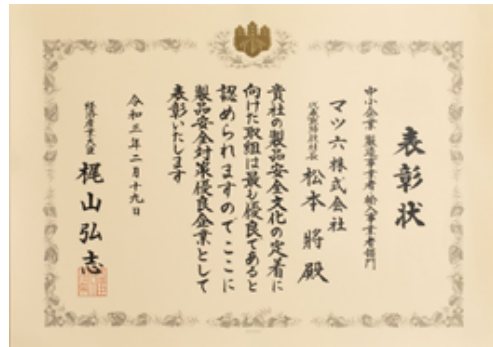 表彰状
中小企業 製造事業者 輸入事業者部門
マツ六株式会社
代表取締役社長 松本 將 殿
貴社の製品安全文化の定着に
向けた取組は最も優良であると
認められますのでここに
製品安全対策優良企業として
表彰いたします
令和三年二月十九日
経済産業大臣 梶山弘志